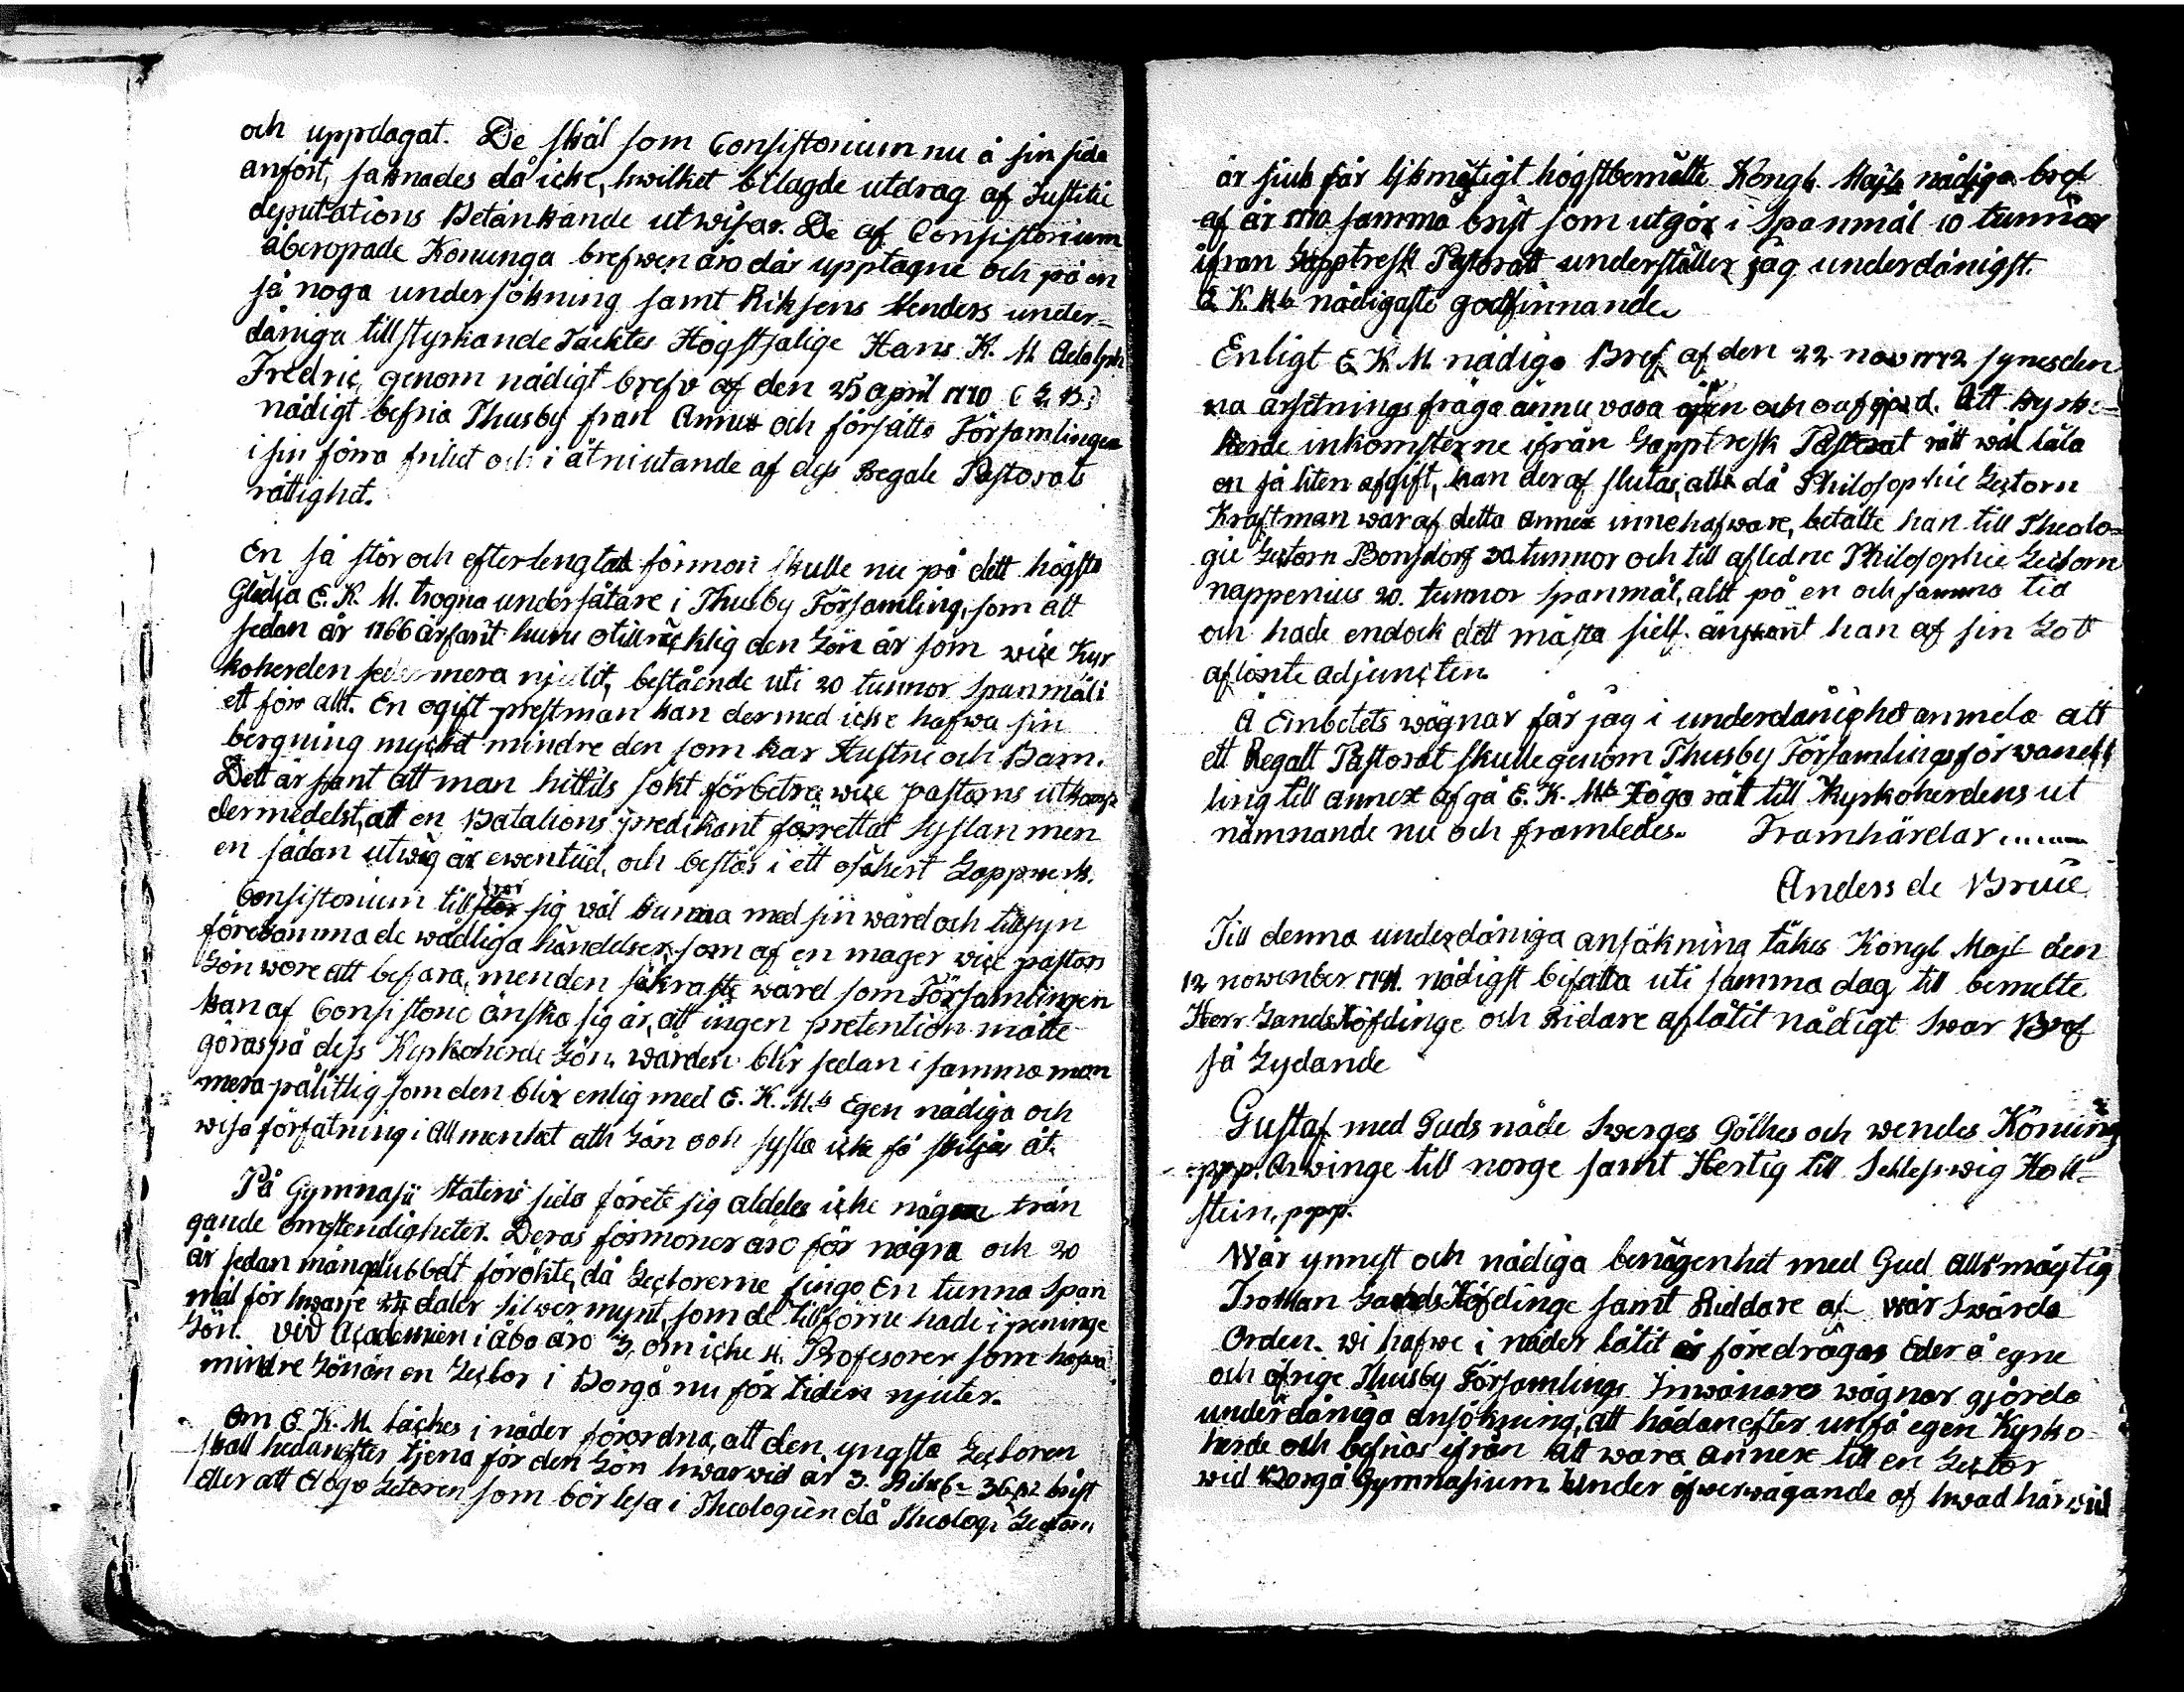 och uppdagat. De skäl som Consistorium nu å sin sida
anfört, saknades då icke, hwilket bilagde utdrag af Justitie
deputations Betänkande utwisar. De af Consistorium
åberopade Konunga brefwen äro där upptagne och på en
så noga undersökning samt Riksens Stenders under-
dåniga tillstyrkande Täcktes Högstsalige Hans K. M. Adolph
Fredric, genom nådigt brefv af den 25 april 1770
nådigt befria Thusby från Annex och försätta Församlingen
i sin förra frihet och i åtniutande af dess Regale Pastorats
rättighet.
En så stor och efterlengtad förmon skulle nu på dett högsta
Glädja E. K. M. trogna undersåtare i Thusby Församling, som allt
sedan år 1766 ärfarit huru otillräcklig den Lön är som wice Kyr
koherden sedermera njutit, bestående uti 20 tunnor Spanmål i
ett för allt. En ogift prestman kan dermed icke hafwa sin
bergning myckit mindre den som har Hustru och Barn.
Dett är sant att man hittils sökt förbetra wice pastorns utkomst
dermedelst, att en Batalions predikant förrettat Sysslan men
en sådan utwäg är ewentuel, och bestås i ett osäkert Lappwerk.
Consistorium tillstor tror sig väl kunna med sin wård och tillsyn
förekomma de wådliga händelser, som af en mager wice pastors
Lön wore att befara, men den säkraste wård som Församlingen
kan af Consistorie önska sig är, att ingen pretention måtte
göras på dess Kyrkoherde Lön, wården blir sedan i samma mon
mera pålitlig som den blir enlig med E. K. M:s Egen nådiga och
wisa författning i Allmenhet ath Lön och sysla icke få skiljas åt.
På Gymnasii Statens sida förete sig aldeles icke någon trän
gande omstendigheter. Deras förmoner äro för några och 20
år sedan mångdubbelt förökte, då Lectorerne fingo En tunna Span
mål för hwarje daler silwermynt, som de tillförne hade i peninge
Lön. vid Academien i åbo äro 3, om icke 4. Profesorer som hafwa
mindre Lön än en Lector i Borgå nu för tiden njuter.
Om E. K. M. täckes i nåder förordna, att den yngsta Lectoren
skall hedanefter tjena för den Lön hwarwid är 3. brist
eller att Eloqv Lectoren som bör lesa i Theologien då Theologie Lectorn
är siuk får ljkmätigt högstbemälte Kongl. Maj:ts nådiga bref
af år 1770 samma brist som utgör i Spanmål 10 tunnor
ifrån Lapptresk Pastoratt underställer jag underdånigst.
E K M:s nådigaste godtfinnande.
Enligt E. K. M. nådiga Bref af den 22 nov 1772 synes den
na ärsetnings fråga ännu vara open och oafgjord. Att Kyrko-
herde inkomsterne ifrån Lapptresk Pastorat rätt wäl tåla
en så liten afgift, kan deraf slutas, att då Philosophie Lectorn
Kraftman war af detta Annex innehafware, betalte han till Theolo-
gie Lectorn Bonsdorf 30 tunnor och till afledne Philosophie Lectorn
nappenius 20. tunnor spanmål, allt på en och samma tid
och hade endock dett mästa sielf. änskönt han af sin Lott
aflönte adjuncten.
Å Embetets wägnar får jag i underdånighet anmela att
ett Regalt Pastorat skulle genom Thusby Församlings förwand
ling till annex afgå E. K. M:s Höga rätt till Kyrkoherdens ut
nämnande nu och framledes. Framhärdar ......
Anders de Bruce
Till denna underdåniga ansökning täkes Kongl Majt den
12 nowember 1774. nådigst bifalla uti samma dag till bemelte
Herr Landshöfdinge och Ridare aflåtit nådigt swar Bref
så Lydande
Gustaf med Guds nåde Swerges Göthes och wendes Konung
ppp. Arwinge till norge samt Hertig till Schleswig Holl-
stein, ppp.
Wår ynnest och nådiga benägenhet med Gud Allsmägtig
Troman Landshöfdinge samt Riddare af wår Swärds
Orden. wi hafwe i nåder låtit oss föredragas Eder å egne
och öfrige Thusby Församlings Innwånares wägnar gjorda
underdåniga ansökning, att hädanefter unfå egen Kyrko-
herde och befrias ifrån att wara annex till en Lector
wid Borgå Gymnasium. Under öfwerwägande af hwad härwid